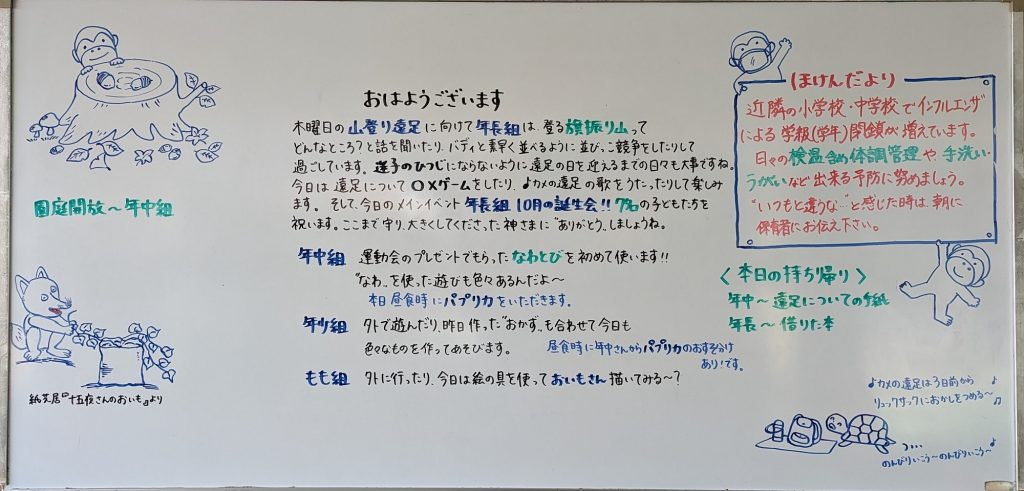 おはようございます
木曜日の山登り遠足に向けて年長組は、登る旗振り山って
どんなところ？と話を聞いたり、バディと素早く並べるように並びっこ競争をしたりして
過ごしています。迷子のひつじにならないように遠足の日を迎えるまでの日々も大事ですね。
今日は遠足について〇×ゲームをしたり、♪カメの遠足の歌をうたったりして楽しみ
ます。そして、今日のメインイベント年長組10月の誕生会!! 7名の子どもたちを
祝います。ここまで守り、大きくしてくださった神さまに"ありがとう"しましょうね。
年中組 運動会のプレゼントでもらったなわとびを初めて使います!!
"なわ"を使った遊びも色々あるんだよ～
本日昼食時にパプリカをいただきます。
年少組 外で遊んだり、昨日作った"おかず"も合わせて今日も
色々なものを作ってあそびます。
昼食時に年中さんからパプリカのおすそ分け
あり！です。
もも組 外に行ったり、今日は絵の具を使っておいもさん描いてみる～？
園庭開放～年中組
紙芝居『十五夜さんのおいも』より
ほけんだより
近隣の小学校・中学校でインフルエンザ
による学級(学年)閉鎖が増えています。
日々の検温含め体調管理や手洗い・
うがいなど出来る予防に努めましょう。
"いつもと違うな…"と感じた時は、朝に
保育者にお伝え下さい。
〈本日の持ち帰り〉
年中～遠足についての手紙
年長～借りた本
♪カメの遠足は3日前から♪
リュックサックにおかしをつめる～♫
のんびりいこう～のんびりいこう～♪